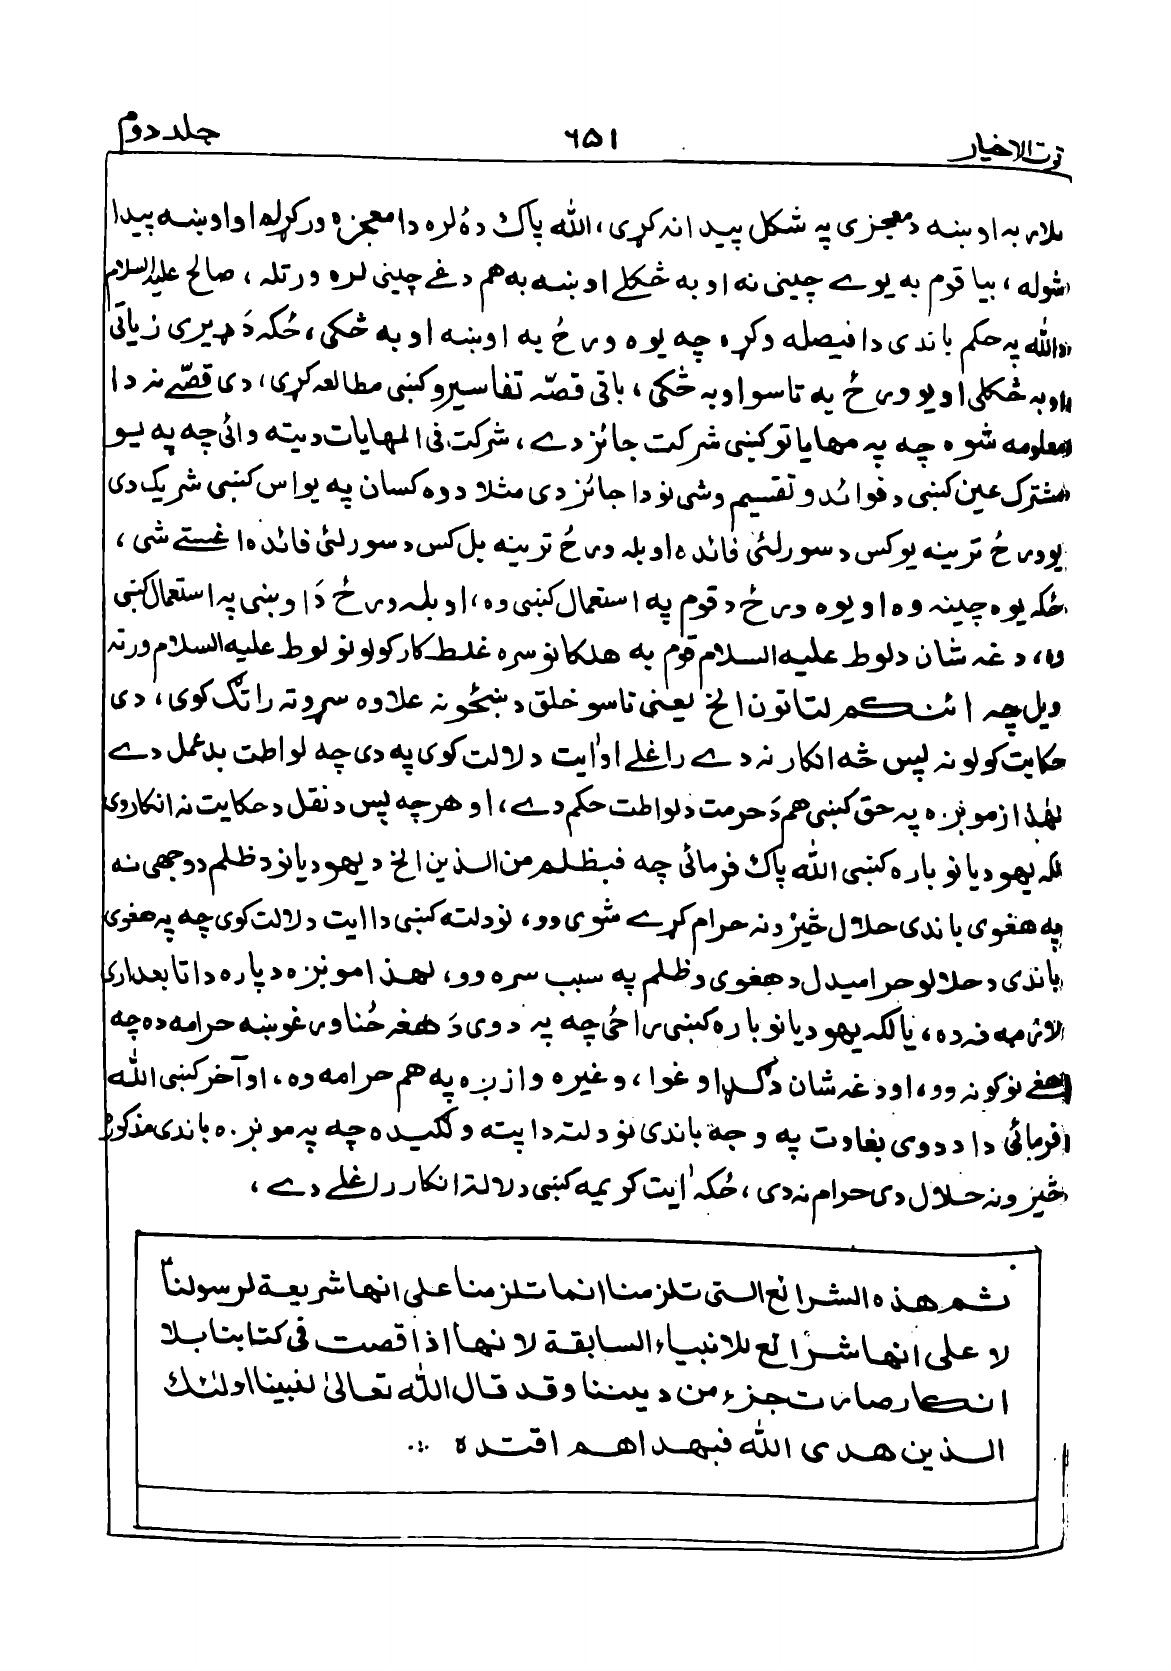 قوت الاخیار ۶۵۱ جلد دوم
ملار به اوښه د معجزی په شکل پیدا نه کړی، الله پاک دهٔ لره دا معجزه ورکړله او اوښه پیدا
شوله، بیا قوم به یوے چینی نه اوبه څکلے اوښه به هم دغے چینی لره ورتله، صالح علیه السلام
دالله په حکم باندی دا فیصله وکړه چه یوه ورځ به اوښه اوبه څکی، ځکه دَ ډیری زیاتی
اوبه څکلی او یو ورځ به تاسو اوبه څکی، باقی قصّه تفاسیرو کښی مطالعه کړی، دی قصّے نه دا
معلومه شوه چه په مهایاتو کښی شرکت جائز دے، شرکت فی المهایات دیته وائی چه په یو
مشترک عین کښی د فوائدو تقسیم وشی نو دا جائز دی مثلا دوه کسان په یو اس کښی شریک دی
یو ورځ ترینه یو کس د سورلئی فائده او بله ورځ ترینه بل کس د سورلئی فائده اغستے شی،
ځکه یوه چینه وه او یوه ورځ د قوم په استعمال کښی وه، او بله ورځ دَ اوښی په استعمال کښی
وه، دغه شان د لوط علیه السلام قوم به هلکانو سره غلط کار کولو نو لوط علیه السلام ورته
ویل چه ائنکم لتاتون الخ یعنی تاسو خلق د ښځو نه علاوه سړو ته راتګ کوی، دی
حکایت کولو نه پس څه انکار نه دے راغلے او اٰیت دلالت کوی په دی چه لواطت بد عمل دے
لهٰذا زمونږه په حق کښی هم دَ حرمت د لواطت حکم دے، او هر چه پس د نقل د حکایت نه انکار وی
لکه یهودیانو باره کښی الله پاک فرمائی چه فبظلم من الذین الخ د یهودیانو د ظلم د وجهی نه
په هغوی باندی حلال څیزونه حرام کړے شوی وو، نو دلته کښی دا ایت دلالت کوی چه په هغوی
باندی د حلالو حرامیدل د هغوی و ظلم په سبب سره وو، لهذا مونږه دپاره دا تابعداری
لازمه نه ده، یا لکه یهودیانو باره کښی راځی چه په دوی دَ هغه ځناور غوښه حرامه ده چه
هغے نوکونه وو، او دغه شان د ګډا و غوا، وغیره وازږه په هم حرامه وه، او آخر کښی الله
فرمائی دا د دوی بغاوت په وجه باندی نو دلته دا پته ولګیده چه په مونږه باندی مذکوره
څیزونه حلال دی حرام نه دی، ځکه اٰیت کریمه کښی دلالة انکار راغلے دے،
ثم هذه الشرائع التی تلزمنا انما تلزمنا علی انها شریعة لرسولنا
لا علی انها شرائع للانبیاء السابقة لا نها اذا قصت فی کتابنا بلا
انکار صارت جزء من دیننا وقد قال الله تعالیٰ لنبینا اولئک
الذین هدی الله فبهداهم اقتده